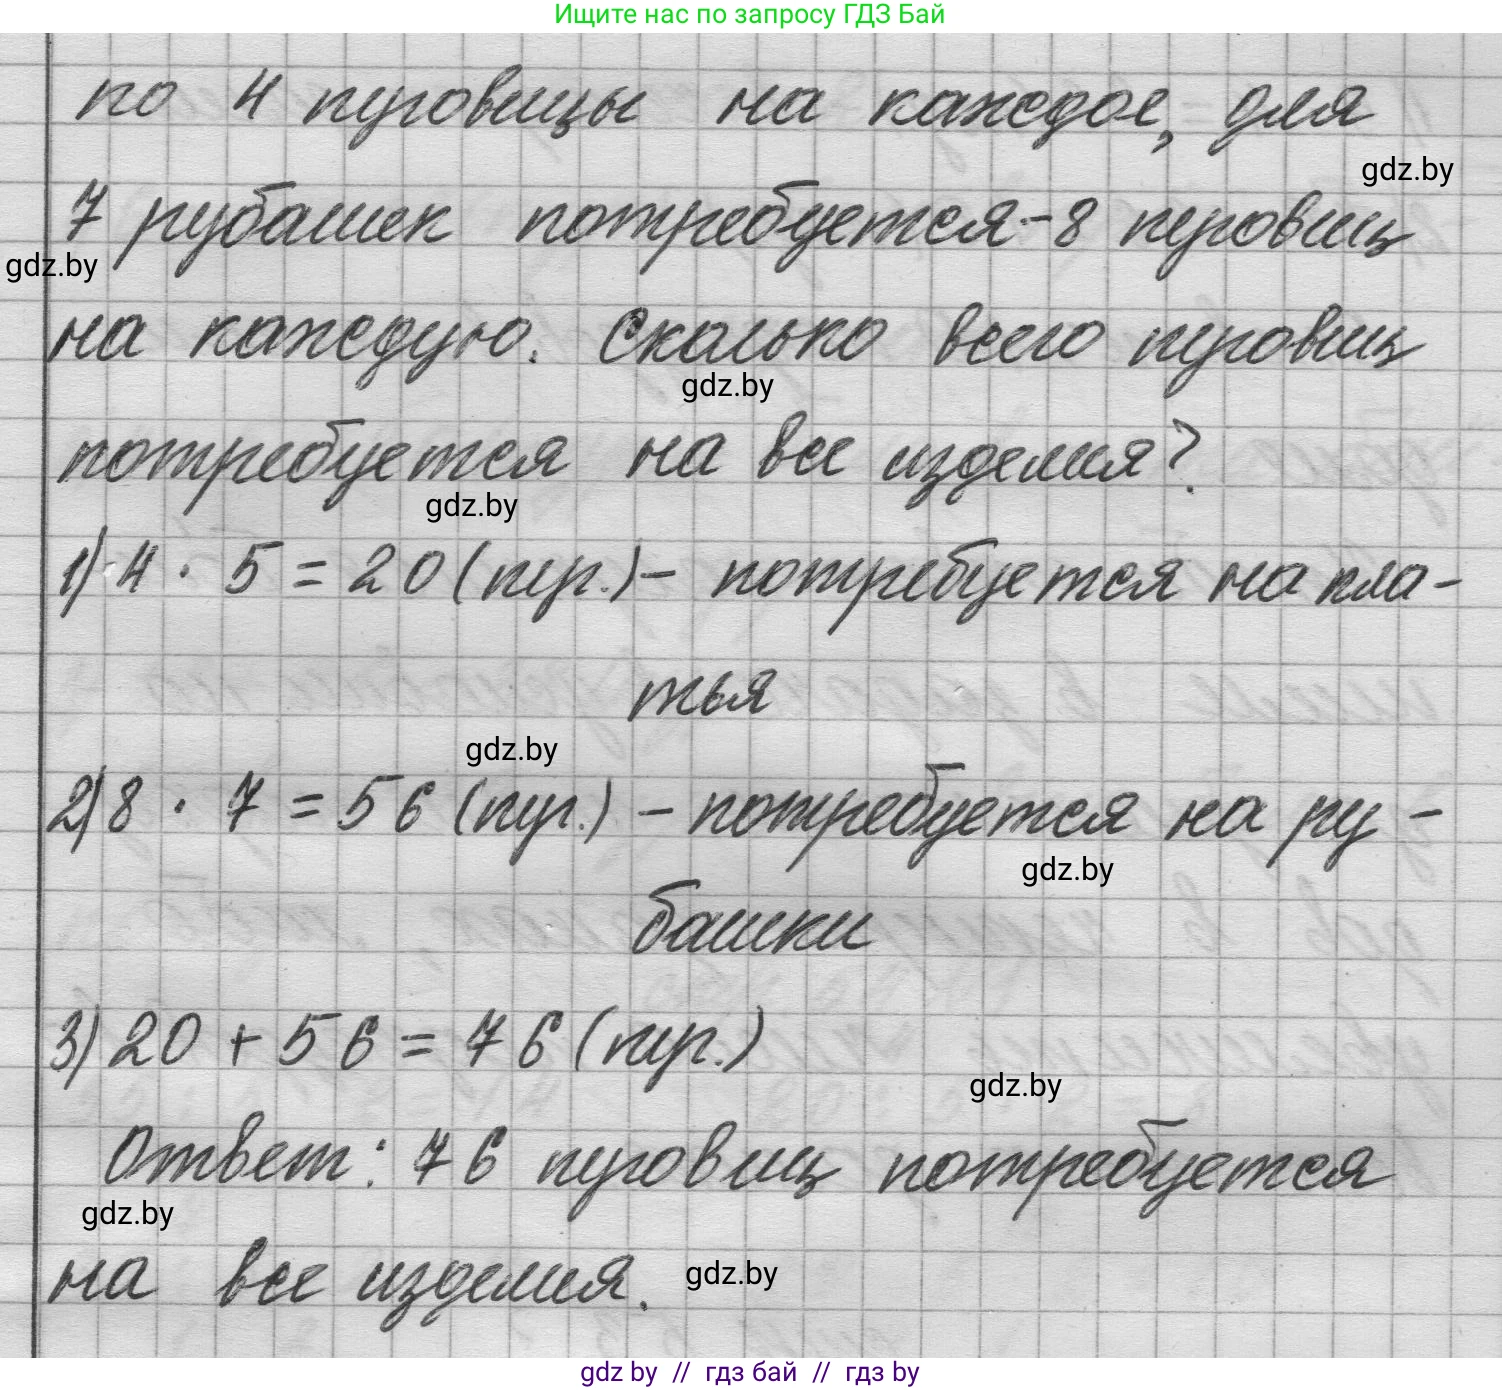 Ищите нас по запросу ГДЗ Бай
по 4 пуговицы на каждое, для
gdz.by
7 рубашек потребуется - 8 пуговиц
gdz.by
на каждую. Сколько всего пуговиц
gdz.by
потребуется на все изделия?
gdz.by
1) 4 · 5 = 20 (пуг.) - потребуется на пла-
тья
gdz.by
2) 8 · 7 = 56 (пуг.) - потребуется на ру-
gdz.by
башки
3) 20 + 56 = 76 (пуг.)
gdz.by
Ответ: 76 пуговиц потребуется
gdz.by
на все изделия.
gdz.by
gdz by // гдз бай // гдз by